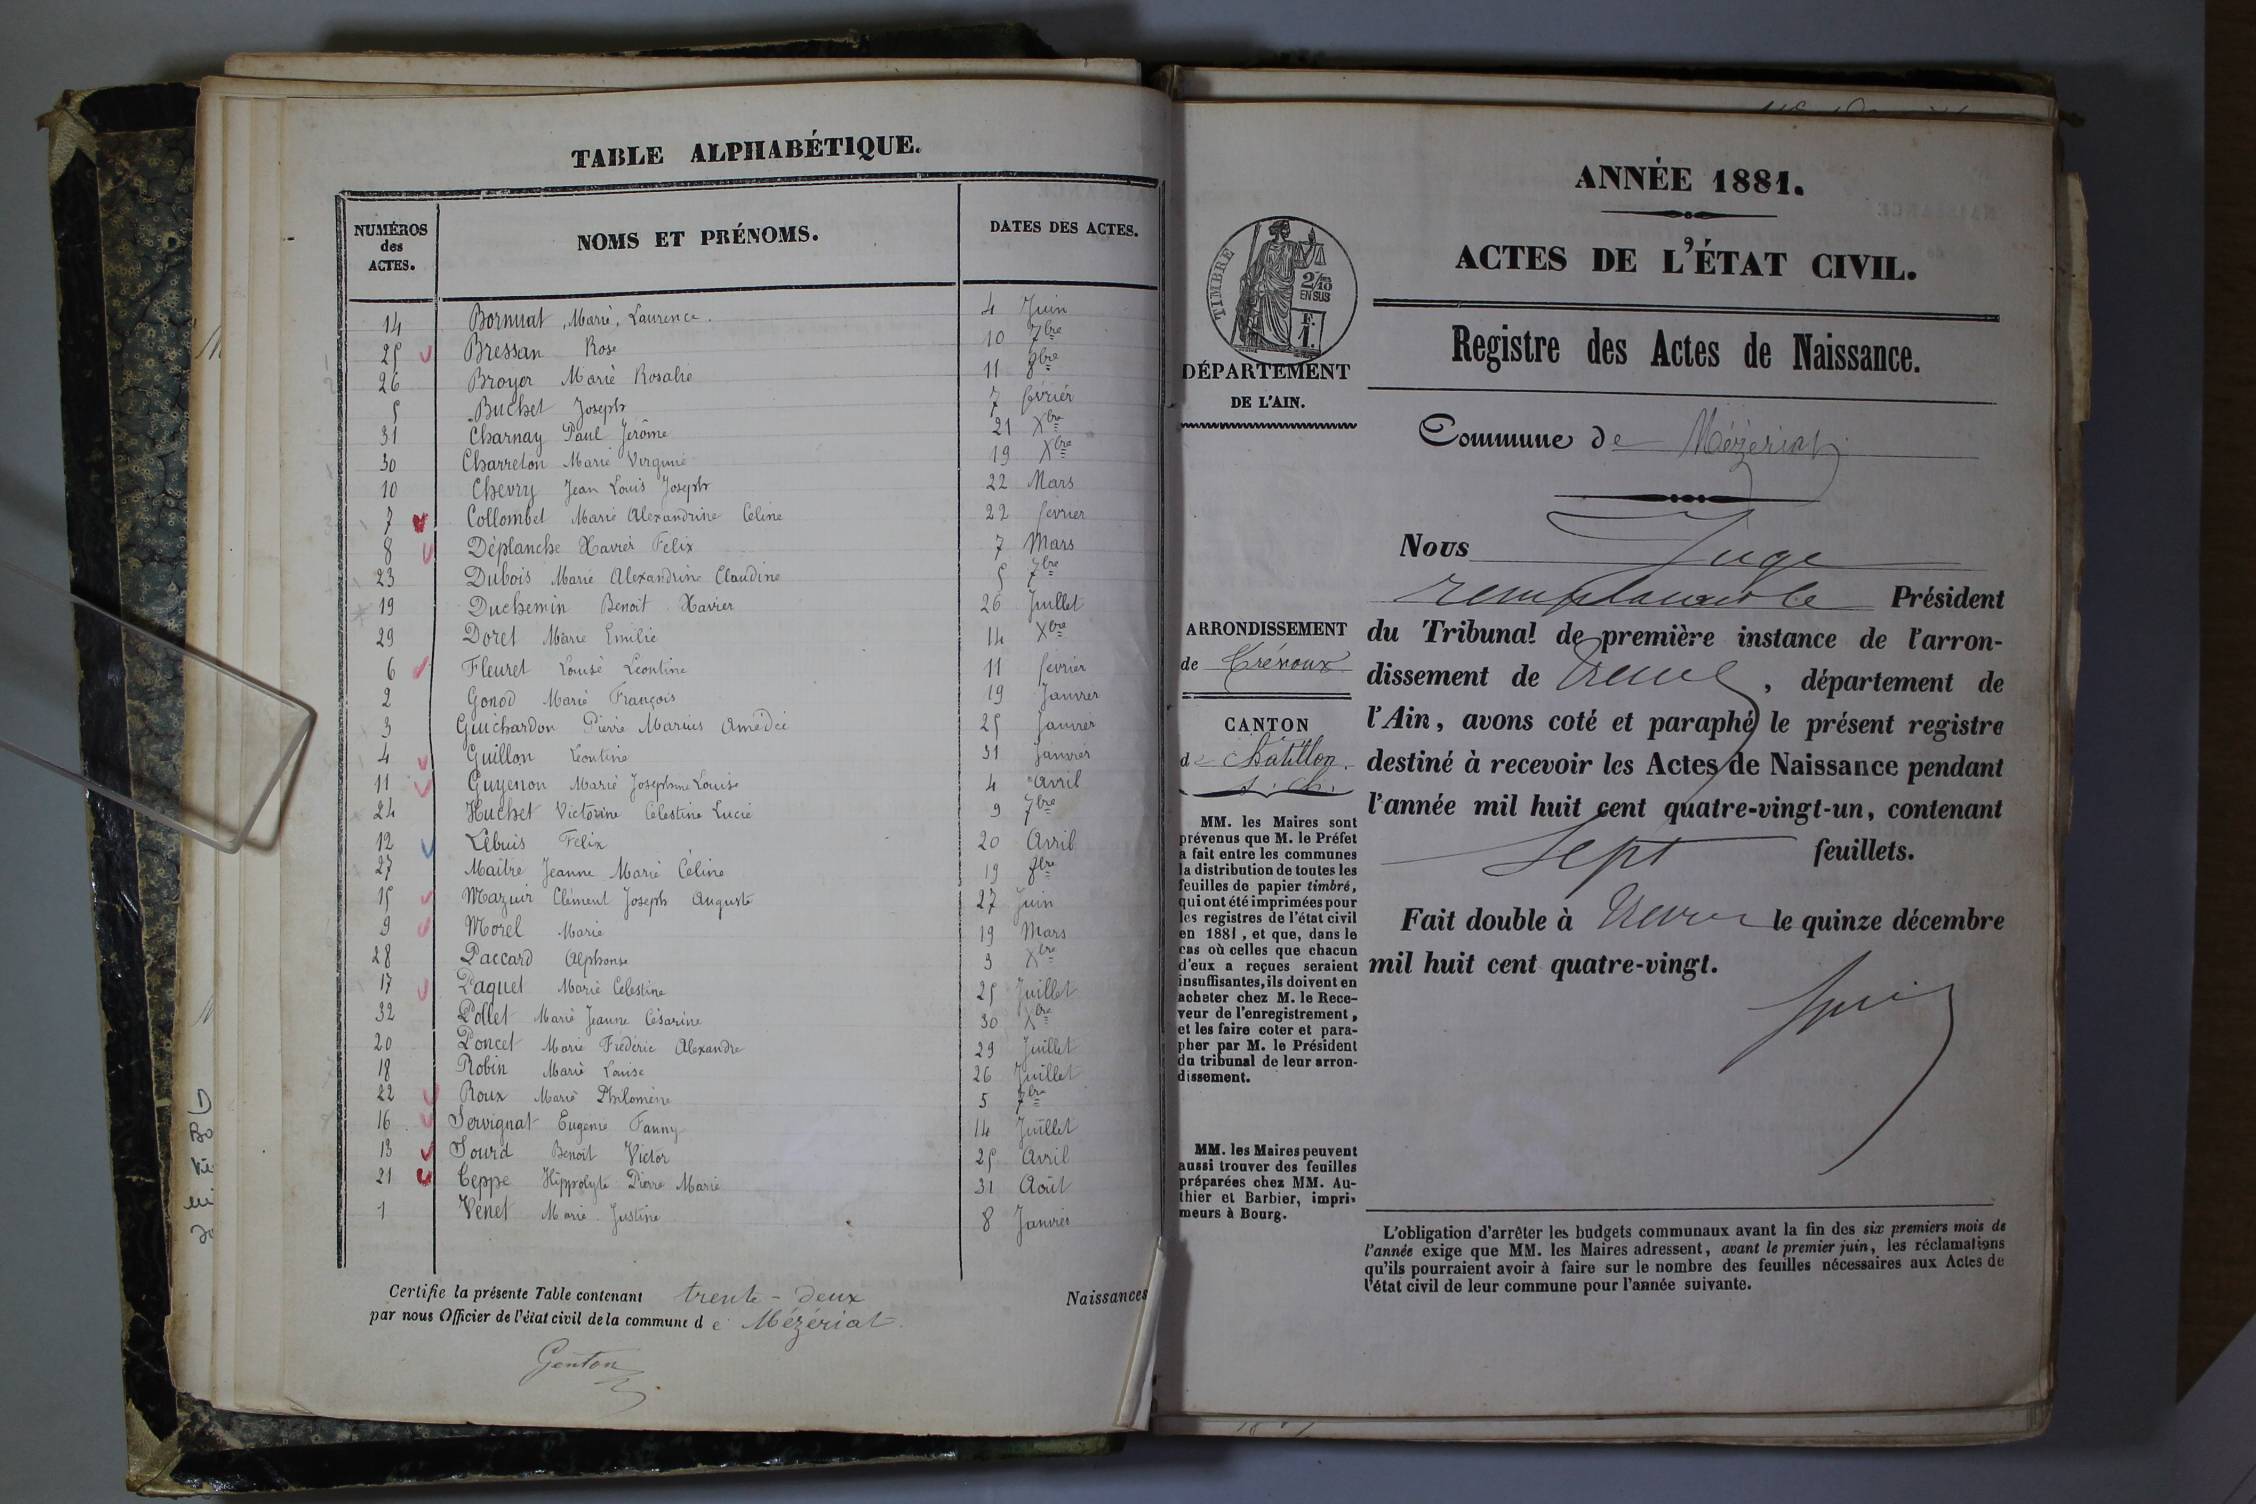 TABLE ALPHABÉTIQUE.
NUMÉROS
des
ACTES.
NOMS ET PRÉNOMS.
DATES DES ACTES.
14 Bornuat, Marie, Laurence. 4 Juin
25 Bressan Rose 10 7bre
26 Broyer Marie Rosalie 11 8bre
5 Buchet Joseph 7 février
31 Charnay Paul Jérôme 21 Xbre
30 Charreton Marie Virginie 19 Xbre
10 Chevry Jean Louis Joseph 22 Mars
7 Collombet Marie Alexandrine Céline 22 février
8 Déplanche Xavier Felix 7 Mars
23 Dubois Marie Alexandrine Claudine 5 7bre
19 Duchemin Benoît Xavier 26 Juillet
29 Doret Marie Emilie 14 Xbre
6 Fleuret Louise Léontine 11 février
2 Gonod Marie François 19 Janvier
3 Guichardon Pierre Marius Amédée 25 Janvier
4 Guillon Léontine 31 Janvier
11 Guyenon Marie Josephine Louise 4 Avril
24 Huchet Victorine Célestine Lucie 9 7bre
12 Lébuis Félix 20 Avril
27 Maître Jeanne Marie Céline 19 8bre
15 Mazuir Clément Joseph Auguste 27 Juin
9 Morel Marie 19 Mars
28 Paccard Alphonse 3 Xbre
17 Paquet Marie Celestine 25 Juillet
32 Pollet Marie Jeanne Césarine 30 Xbre
20 Poncet Marie Frédéric Alexandre 29 Juillet
18 Robin Marie Louise 26 Juillet
22 Roux Marie Philomène 5 7bre
16 Servignat Eugenie Fanny 14 Juillet
13 Sourd Benoît Victor 25 Avril
21 Ceppe Hippolyte Pierre Marie 31 Août
1 Venet Marie Justine 8 Janvier
Certifie la présente Table contenant trente-deux Naissances
par nous Officier de l'état civil de la commune de Mézériat.
Genton
ANNÉE 1881.
ACTES DE L'ÉTAT CIVIL.
Registre des Actes de Naissance.
TIMBRE
2/10
EN SUS
F.
1.
DÉPARTEMENT
DE L'AIN.
ARRONDISSEMENT
de Trévoux
CANTON
de Châtillon
s. Ch.
MM. les Maires sont
prévenus que M. le Préfet
a fait entre les communes
la distribution de toutes les
feuilles de papier timbré,
qui ont été imprimées pour
les registres de l'état civil
en 1881, et que, dans le
cas où celles que chacun
d'eux a reçues seraient
insuffisantes, ils doivent en
acheter chez M. le Rece-
veur de l'enregistrement,
et les faire coter et para-
pher par M. le Président
du tribunal de leur arron-
dissement.
MM. les Maires peuvent
aussi trouver des feuilles
préparées chez MM. Au-
thier et Barbier, impri-
meurs à Bourg.
Commune de Mézériat
Nous Juge
remplaçant le Président
du Tribunal de première instance de l'arron-
dissement de Trévoux, département de
l'Ain, avons coté et paraphé le présent registre
destiné à recevoir les Actes de Naissance pendant
l'année mil huit cent quatre-vingt-un, contenant
Sept feuillets.
Fait double à Trévoux le quinze décembre
mil huit cent quatre-vingt.
L'obligation d'arrêter les budgets communaux avant la fin des six premiers mois de
l'année exige que MM. les Maires adressent, avant le premier juin, les réclamations
qu'ils pourraient avoir à faire sur le nombre des feuilles nécessaires aux Actes de
l'état civil de leur commune pour l'année suivante.